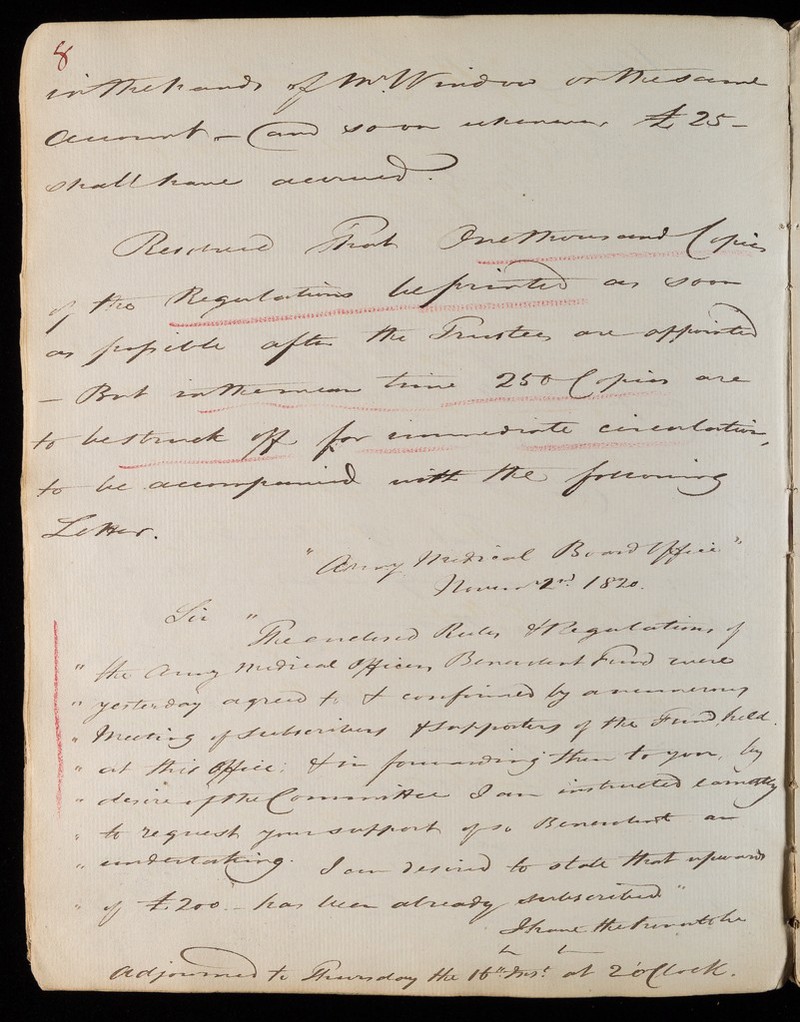 8
in the hands of Mr. Window on the same
Account – (and so on whenever £25 –
shall have accrued.)
Resolved That One thousand Copies
of the Regulations be printed as soon
as possible after the Trustees are appointed
– But in the mean time 250 Copies are
to be struck off for immediate circulation,
to be accompanied with the following
Letter.
"Army Medical Board Office"
Novemr. 2nd. 1820.
Sir "
The enclosed Rules & Regulations of
" the Army Medical Officers Benevolent Fund were
" yesterday agreed to & confirmed by a numerous
" Meeting of Subscribers & Supporters of the Fund, held
" at this Office; & in forwarding them to you, by
" desire of the Committee I am instructed earnestly
" to request your support of so Benevolent an
" undertaking. I am desired to state that upwards
" of £200 – has been already subscribed"
I have the honor to be
Adjourned to Thursday the 16th Inst. at 2 o'Clock.